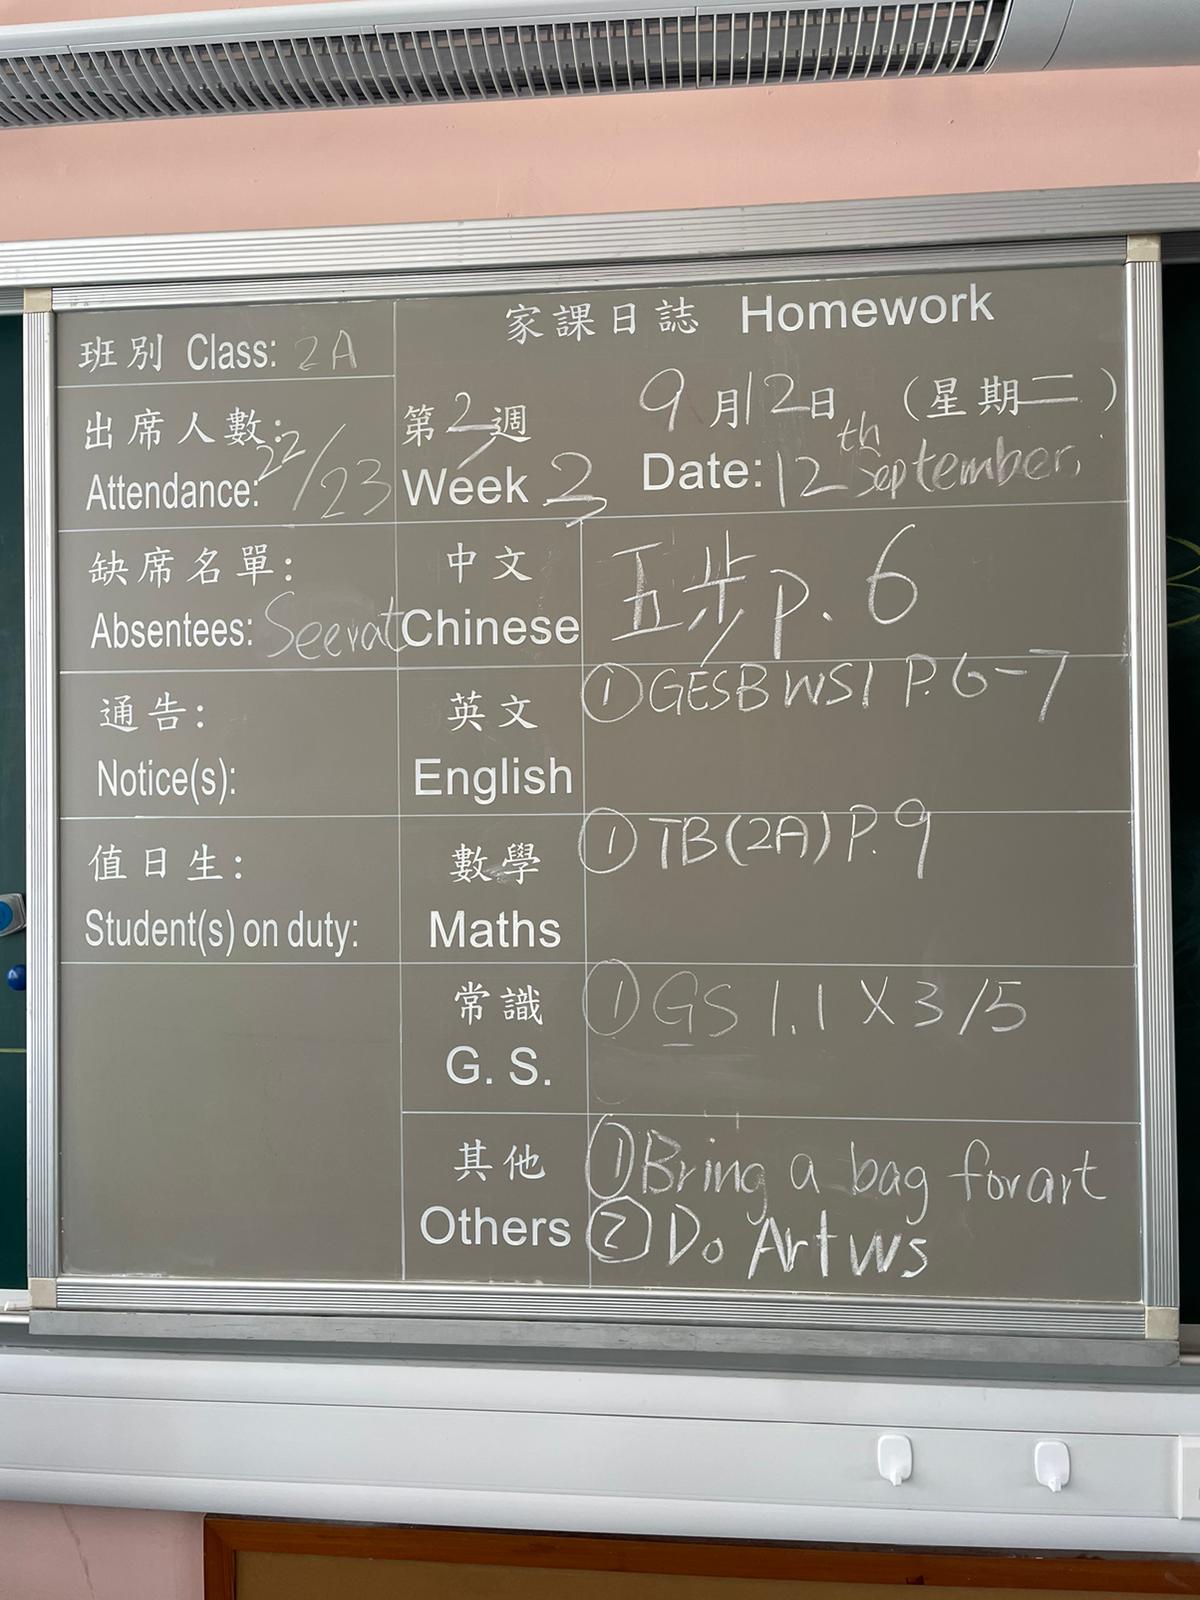 家課日誌 Homework
班別 Class: 2A
出席人數:
Attendance: 22/23
第2週
Week 2
9月12日 (星期二)
Date: 12th September.
缺席名單:
Absentees: Seerat
中文
Chinese
五步 p. 6
通告:
Notice(s):
英文
English
① GESB WS1 P.6-7
值日生:
Student(s) on duty:
數學
Maths
① TB(2A) P.9
常識
G. S.
① GS 1.1 X 3 /5
其他
Others
① Bring a bag for art
② Do Art WS